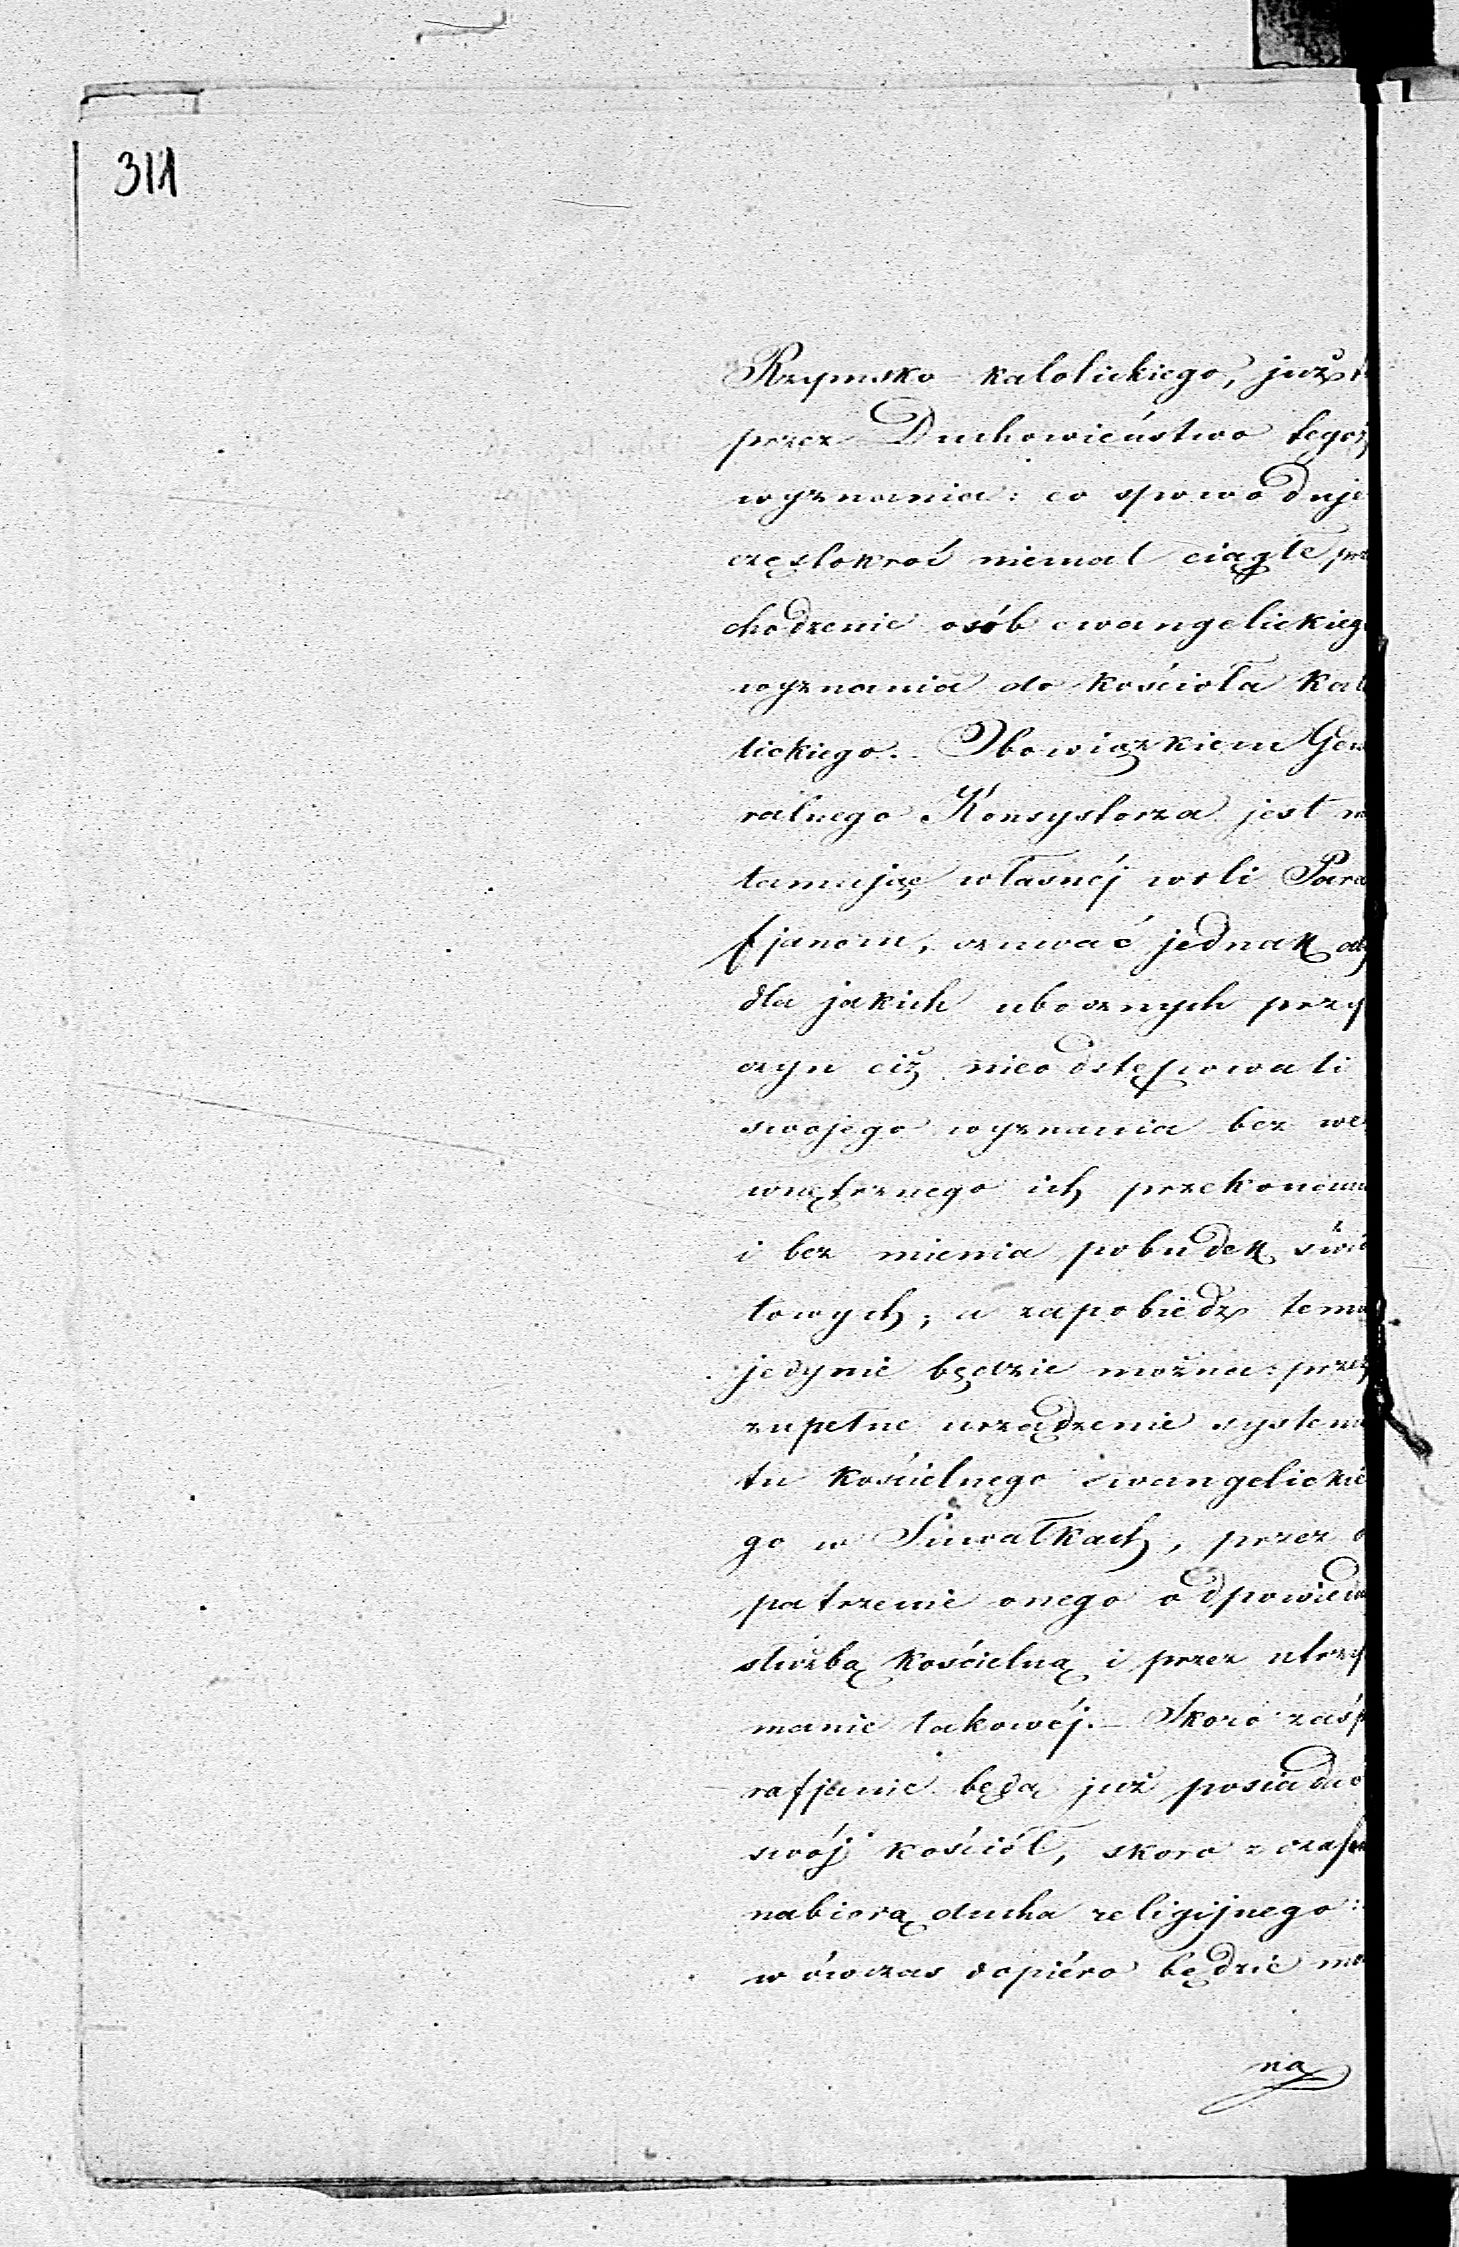 311
Rzymsko-katolickiego, już
przez Duchowieństwo tegoż
wyznania: co spowoduje
częstokroć niemal ciągłe prze
chodzenie osób ewangelickiego
wyznania do kościoła kato
lickiego. Obowiązkiem Gene
ralnego Konsystorza jest nie
tamując własnéj woli Para
fjanom, czuwać jednak aby
dla jakich ubocznych przy
czyn ciż nieodstępowali
swojego wyznania bez we
wnętrznego ich przekonania
i bez mienia pobudek świa
towych; a zapobiedz temu
jedynie będzie można: przez
zupełne urządzenie systema
tu kościelnego ewangelickie
go w Suwałkach, przez o
patrzenie onego odpowiednią
służbą kościelną i przez utrzy
manie takowéj.- Skoro zaś pa
rafjanie będą już posiadać
swój kościół, skoro z czasem
nabiorą ducha religijnego:
wówczas dopiéro będzie moż
na